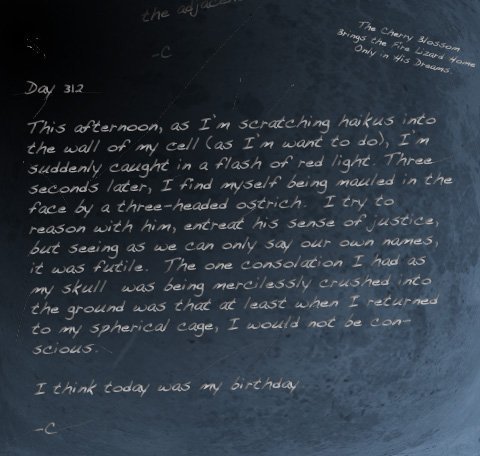 the adjacent
-C
The Cherry Blossom
Brings the Fire Lizard Home
Only in His Dreams.
Day 312
This afternoon, as I'm scratching haikus into
the wall of my cell (as I'm want to do), I'm
suddenly caught in a flash of red light. Three
seconds later, I find myself being mauled in the
face by a three-headed ostrich. I try to
reason with him, entreat his sense of justice,
but seeing as we can only say our own names,
it was futile. The one consolation I had as
my skull was being mercilessly crushed into
the ground was that at least when I returned
to my spherical cage, I would not be con-
scious.
I think today was my birthday
-C